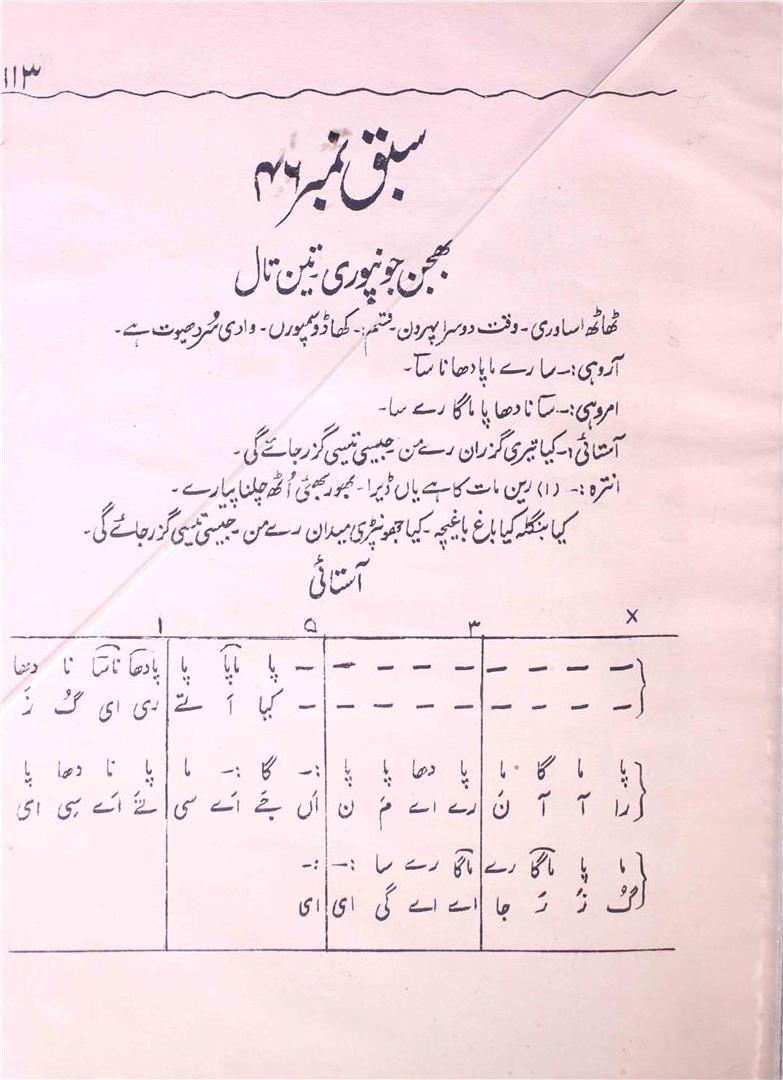 ۱۱۳
سبق نمبر ۴۶
بھجن جونپوری۔ تین تال
ٹھاٹھ اساوری۔ وقت دوسرا پہر دن۔ قسم:۔ کھاڈو سمپورن۔ وادی سُر دھیوت ہے۔
آروہی:۔ سا رے ما پا دھا نا سآ۔
امروہی:۔ سآ نا دھا پا ما گا رے سا۔
آستائی:۔ کیا تیری گزران رے من جیسی تیسی گزر جائے گی۔
انترہ:۔ (۱) رین مات کا ہے یاں ڈیرا۔ بھور بھئی اُٹھ چلنا پیارے۔
کیا بنگلہ کیا باغ باغیچہ۔ کیا جھونپڑی میدان رے من جیسی تیسی گزر جائے گی۔
آستائی
x ۳ ۵ ۱
– – – – – – – – – پا ماپا پا پادھا ناسآ نا دھا
– – – – – – – – – کیا اَ تے ری ای گُ زَ
پا ما گا ما پا دھا پا پا :– گا :– ما پا نا دھا پا
را آ آ نَ رے اے مَ ن اَں جَے اَے سی تَے اَے سِی ای
ما پا ماگا رے ماگا رے سا :– :–
گُ زَ رَ جا اے اے گی ای ای